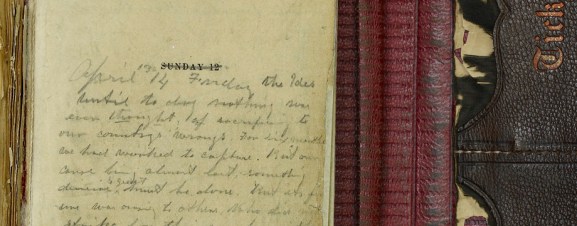 SUNDAY 12
April 14 Friday the Ides
Until to day nothing was
ever thought of sacrificing to
our country's wrongs. For six months
we had worked to capture. But our
cause being almost lost, something
decisive & great must be done. But its
was owing to others, who did not
Tick